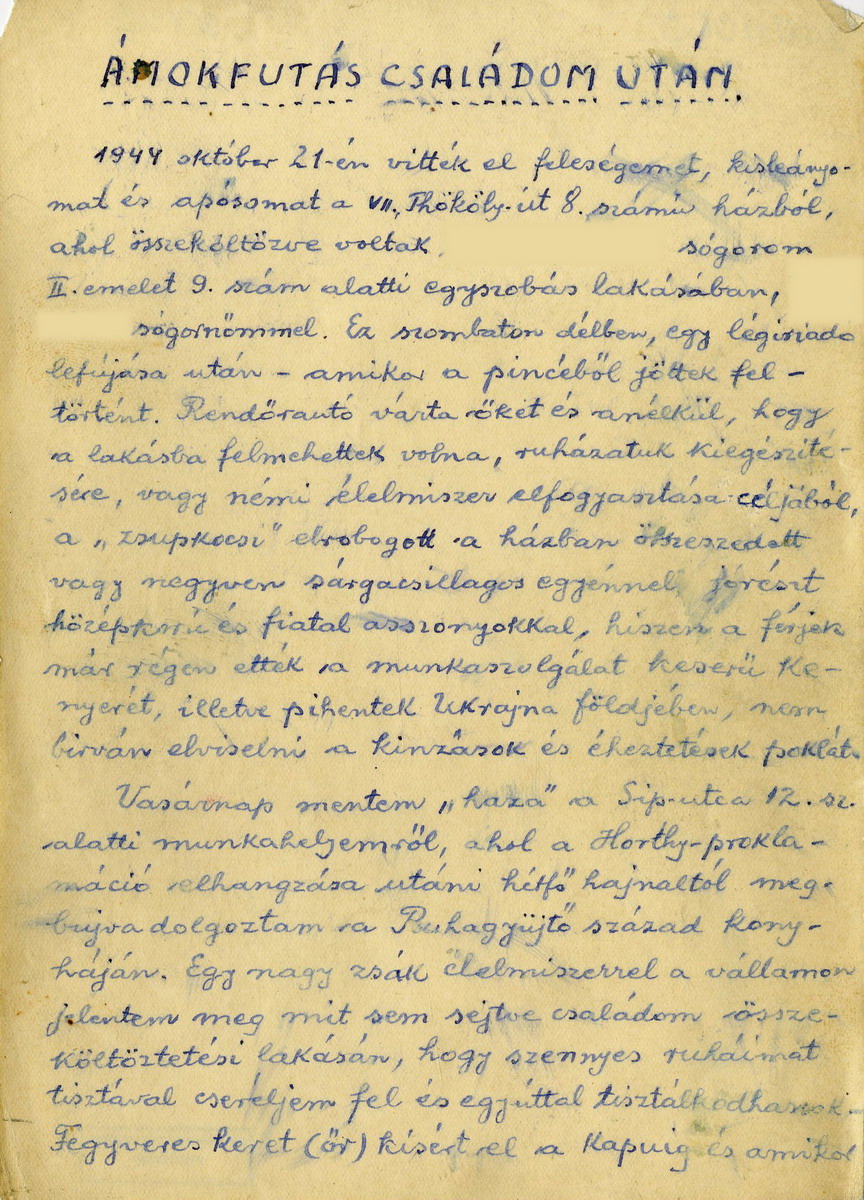 ÁMOKFUTÁS CSALÁDOM UTÁN.
1944 október 21-én vitték el feleségemet, kisleányo-
mat és apósomat a VII., Thököly-út 8. számú házból,
ahol összeköltözve voltak sógorom
II. emelet 9. szám alatti egyszobás lakásában,
sógornőmmel. Ez szombaton délben, egy légiriadó
lefújása után - amikor a pincéből jöttek fel -
történt. Rendőrautó várta őket és anélkül, hogy
a lakásba felmehettek volna, ruházatuk kiegészíté-
sére, vagy némi élelmiszer elfogyasztása céljából,
a „zsupkocsi" elrobogott a házban összeszedett
vagy negyven sárgacsillagos egyénnel, jórészt
középkorú és fiatal asszonyokkal, hiszen a férjek
már régen ették a munkaszolgálat keserű ke-
nyerét, illetve pihentek Ukrajna földjében, nem
birván elviselni a kinzások és éheztetések poklát.
Vasárnap mentem „haza" a Sip-utca 12. sz.
alatti munkahelyemről, ahol a Horthy-prokla-
máció elhangzása utáni hétfő hajnaltól meg-
bujva dolgoztam a Ruhagyüjtő század kony-
háján. Egy nagy zsák élelmiszerrel a vállamon
jelentem meg mit sem sejtve családom össze-
költöztetési lakásán, hogy szennyes ruháimat
tisztával cseréljem fel és egyúttal tisztálkodhassak.
Fegyveres keret (őr) kisért el a kapuig és amikor